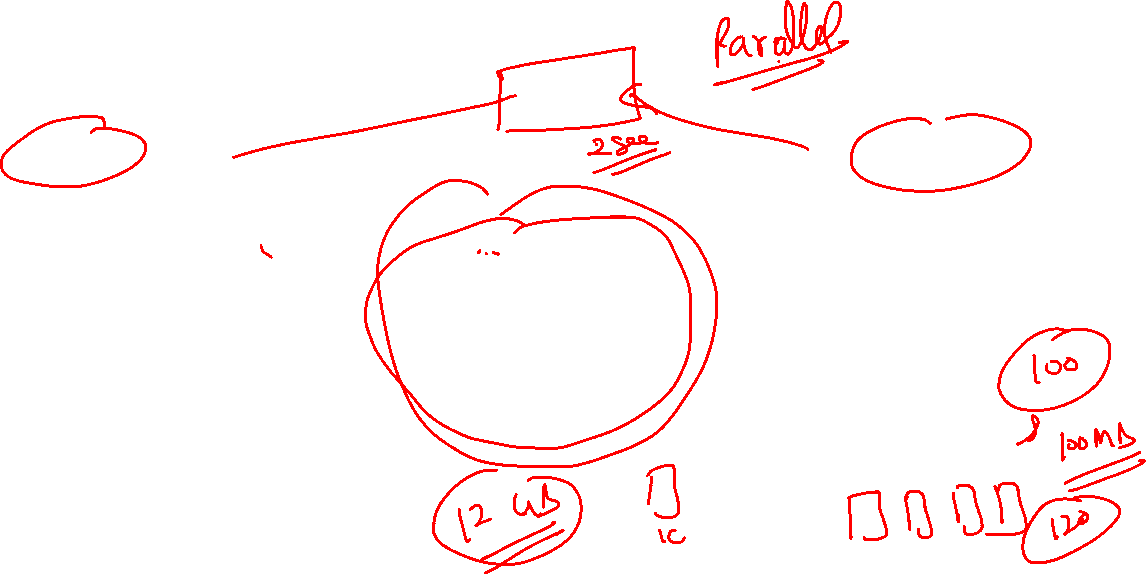 Parallel
2 sec
...
100
100MB
12 GB
1C
120